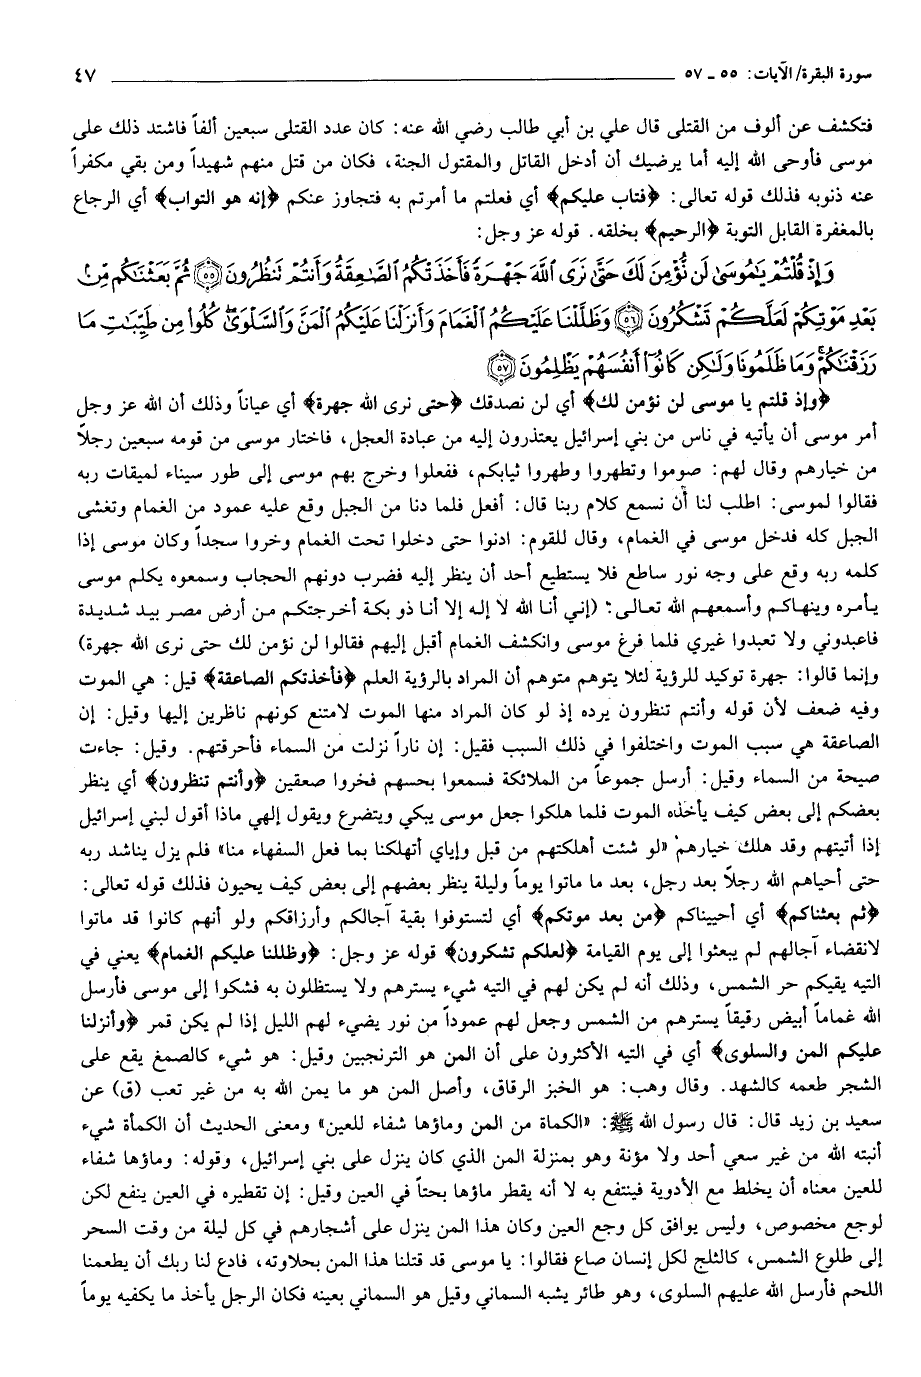 سورة البقرة/ الآيات: ٥٥ ـ ٥٧ ٤٧
فتكشف عن ألوف من القتلى قال علي بن أبي طالب رضي الله عنه: كان عدد القتلى سبعين ألفاً فاشتد ذلك على
موسى فأوحى الله إليه أما يرضيك أن أدخل القاتل والمقتول الجنة، فكان من قتل منهم شهيداً ومن بقي مكفراً
عنه ذنوبه فذلك قوله تعالى: ﴿فتاب عليكم﴾ أي فعلتم ما أمرتم به فتجاوز عنكم ﴿إنه هو التواب﴾ أي الرجاع
بالمغفرة القابل التوبة ﴿الرحيم﴾ بخلقه. قوله عز وجل:
وَإِذْ قُلْتُمْ يَٰمُوسَىٰ لَن نُّؤْمِنَ لَكَ حَتَّىٰ نَرَى ٱللَّهَ جَهْرَةً فَأَخَذَتْكُمُ ٱلصَّٰعِقَةُ وَأَنتُمْ تَنظُرُونَ ﴿٥٥﴾ ثُمَّ بَعَثْنَٰكُم مِّنۢ
بَعْدِ مَوْتِكُمْ لَعَلَّكُمْ تَشْكُرُونَ ﴿٥٦﴾ وَظَلَّلْنَا عَلَيْكُمُ ٱلْغَمَامَ وَأَنزَلْنَا عَلَيْكُمُ ٱلْمَنَّ وَٱلسَّلْوَىٰ كُلُوا۟ مِن طَيِّبَٰتِ مَا
رَزَقْنَٰكُمْ وَمَا ظَلَمُونَا وَلَٰكِن كَانُوٓا۟ أَنفُسَهُمْ يَظْلِمُونَ ﴿٥٧﴾
﴿وإذ قلتم يا موسى لن نؤمن لك﴾ أي لن نصدقك ﴿حتى نرى الله جهرة﴾ أي عياناً وذلك أن الله عز وجل
أمر موسى أن يأتيه في ناس من بني إسرائيل يعتذرون إليه من عبادة العجل، فاختار موسى من قومه سبعين رجلاً
من خيارهم وقال لهم: صوموا وتطهروا وطهروا ثيابكم، ففعلوا وخرج بهم موسى إلى طور سيناء لميقات ربه
فقالوا لموسى: اطلب لنا أن نسمع كلام ربنا قال: أفعل فلما دنا من الجبل وقع عليه عمود من الغمام وتغشى
الجبل كله فدخل موسى في الغمام، وقال للقوم: ادنوا حتى دخلوا تحت الغمام وخروا سجداً وكان موسى إذا
كلمه ربه وقع على وجه نور ساطع فلا يستطيع أحد أن ينظر إليه فضرب دونهم الحجاب وسمعوه يكلم موسى
يأمره وينهاكم وأسمعهم الله تعالى: (إني أنا الله لا إله إلا أنا ذو بكة أخرجتكم من أرض مصر بيد شديدة
فاعبدوني ولا تعبدوا غيري فلما فرغ موسى وانكشف الغمام أقبل إليهم فقالوا لن نؤمن لك حتى نرى الله جهرة)
وإنما قالوا: جهرة توكيد للرؤية لئلا يتوهم متوهم أن المراد بالرؤية العلم ﴿فأخذتكم الصاعقة﴾ قيل: هي الموت
وفيه ضعف لأن قوله وأنتم تنظرون يرده إذ لو كان المراد منها الموت لامتنع كونهم ناظرين إليها وقيل: إن
الصاعقة هي سبب الموت واختلفوا في ذلك السبب فقيل: إن ناراً نزلت من السماء فأحرقتهم. وقيل: جاءت
صيحة من السماء وقيل: أرسل جموعاً من الملائكة فسمعوا بحسهم فخروا صعقين ﴿وأنتم تنظرون﴾ أي ينظر
بعضكم إلى بعض كيف يأخذه الموت فلما هلكوا جعل موسى يبكي ويتضرع ويقول إلهي ماذا أقول لبني إسرائيل
إذا أتيتهم وقد هلك خيارهم «لو شئت أهلكتهم من قبل وإياي أتهلكنا بما فعل السفهاء منا» فلم يزل يناشد ربه
حتى أحياهم الله رجلاً بعد رجل، بعد ما ماتوا يوماً وليلة ينظر بعضهم إلى بعض كيف يحيون فذلك قوله تعالى:
﴿ثم بعثناكم﴾ أي أحييناكم ﴿من بعد موتكم﴾ أي لتستوفوا بقية آجالكم وأرزاقكم ولو أنهم كانوا قد ماتوا
لانقضاء آجالهم لم يبعثوا إلى يوم القيامة ﴿لعلكم تشكرون﴾ قوله عز وجل: ﴿وظللنا عليكم الغمام﴾ يعني في
التيه يقيكم حر الشمس، وذلك أنه لم يكن لهم في التيه شيء يسترهم ولا يستظلون به فشكوا إلى موسى فأرسل
الله غماماً أبيض رقيقاً يسترهم من الشمس وجعل لهم عموداً من نور يضيء لهم الليل إذا لم يكن قمر ﴿وأنزلنا
عليكم المن والسلوى﴾ أي في التيه الأكثرون على أن المن هو الترنجبين وقيل: هو شيء كالصمغ يقع على
الشجر طعمه كالشهد. وقال وهب: هو الخبز الرقاق، وأصل المن هو ما يمن الله به من غير تعب (ق) عن
سعيد بن زيد قال: قال رسول الله ﷺ: «الكمأة من المن وماؤها شفاء للعين» ومعنى الحديث أن الكمأة شيء
أنبته الله من غير سعي أحد ولا مؤنة وهو بمنزلة المن الذي كان ينزل على بني إسرائيل، وقوله: وماؤها شفاء
للعين معناه أن يخلط مع الأدوية فينتفع به لا أنه يقطر ماؤها بحتاً في العين وقيل: إن تقطيره في العين ينفع لكن
لوجع مخصوص، وليس يوافق كل وجع العين وكان هذا المن ينزل على أشجارهم في كل ليلة من وقت السحر
إلى طلوع الشمس، كالثلج لكل إنسان صاع فقالوا: يا موسى قد قتلنا هذا المن بحلاوته، فادع لنا ربك أن يطعمنا
اللحم فأرسل الله عليهم السلوى، وهو طائر يشبه السماني وقيل هو السماني بعينه فكان الرجل يأخذ ما يكفيه يوماً